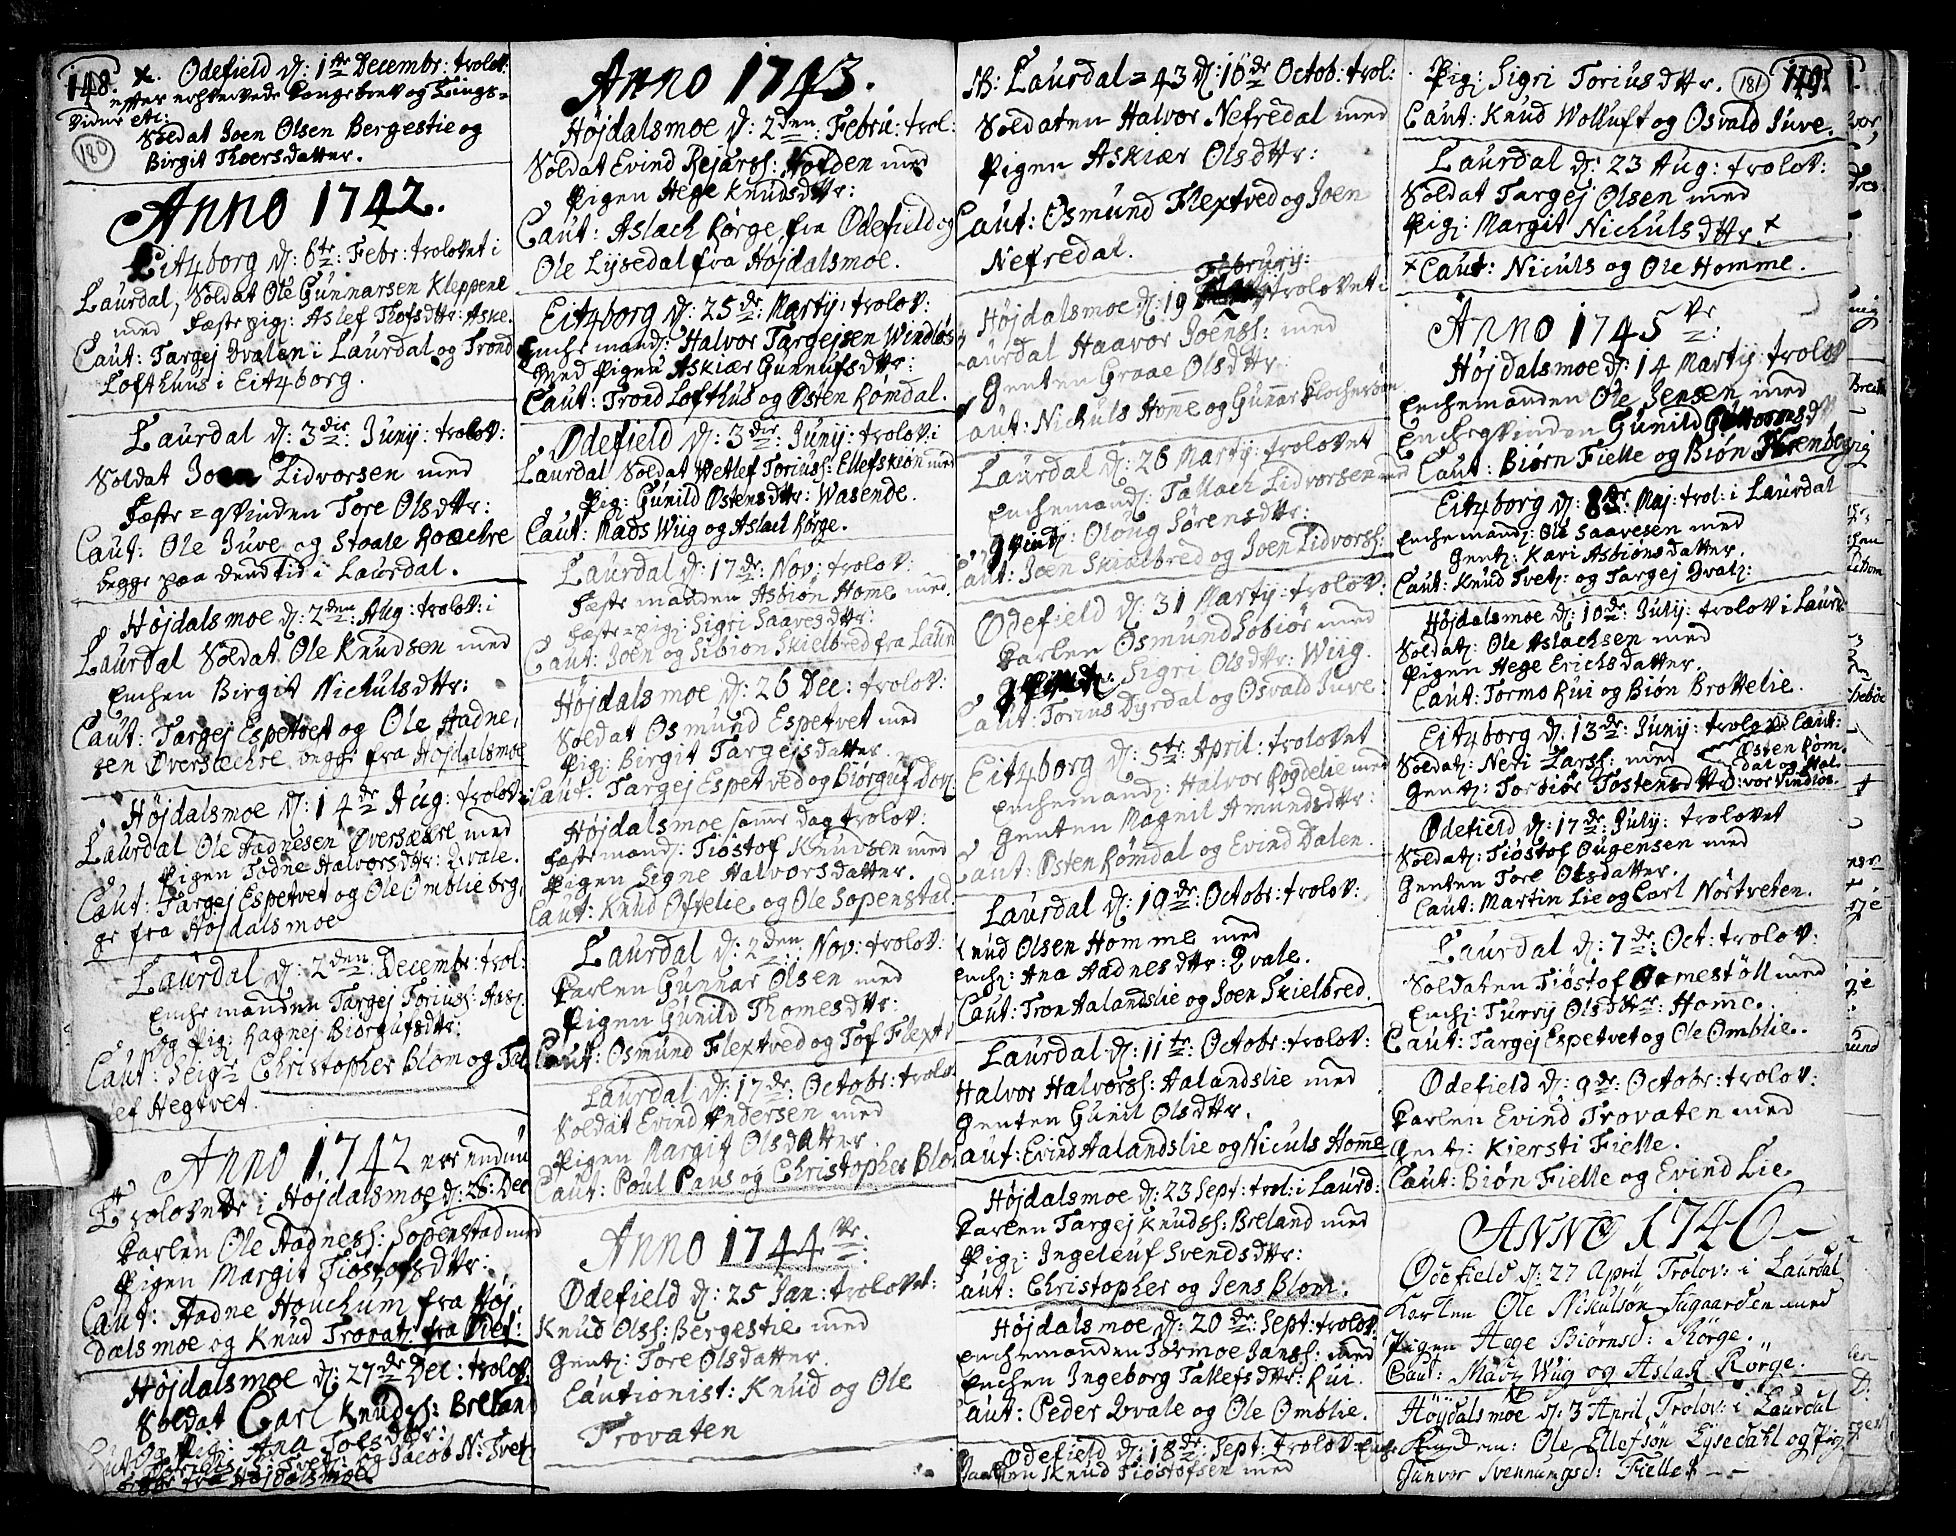 148.
180
Odefield d: 1ste Decembr: trolov:
efter erhvervede Kongebrev og Tings=
vidne etc:
Soldat Joen Olsen Bergestie og
Birgit Thoersdatter.
Anno 1742.
Eitzborg d: 6te Febr: trolovet i
Laurdal, Soldat Ole Gunnarsen Kleppene
med Fæste pig: Aslef Thofsdttr: Aske.
Caut: Targej Qvalen i Laurdal og Trond
Lofthuus i Eitzborg.
Laurdal d: 3die Junij: trolov:
Soldat Joen Lidvorsen med
Fæste=qvinden Tore Olsdttr:
Caut: Ole Juve og Stoale Roæchre
begge paa dend tid i Laurdal.
Højdalsmoe d: 2den Aug: trolov: i
Laurdal Soldat Ole Knudsen med
Enchen Birgit Nichulsdttr:
Caut: Targej Espetvet og Ole Aadne,
sen Øversæchre begge fra Højdalsmoe
Højdalsmoe d: 14de Aug: trolov:
Laurdal Ole Aadnesen Øversæchre med
Pigen Todne Halvorsdttr: Qvale.
Caut: Targej Espetvet og Ole Omblie beg,
ge fra Højdalsmoe
Laurdal d: 2den Decembr: trol:
Enchemanden Targej Toriuss:
og Pig: Ragnej Biörgufsdttr:
Caut: Seigr Christopher Blom og
lef Hegtvet.
Anno 1742 ere endnu
Trolovede i Højdalsmoe d: 26: Dec
Karlen Ole Aadness: Sopenstad med
Pigen Margit Tiöstofsdttr:
Caut: Aadne Houchum fra Høj,
dalsmoe og Knud Trovat: fra
Højdalsmoe d: 27de Dec: trolov:
Soldat Carl Knudss: Breland
og Pig: Ana Tofsdttr:
og Jacob N: Tvet:
begge fra Højdalsmoe
Anno 1743.
Højdalsmoe d: 2den Febru: trol:
Soldat Evind Rejarss: Holden med
Pigen Hege Knudsdttr:
Caut: Aslach Rørge fra Ødefield og
Ole Lysedal fra Højdalsmoe.
Eitzborg d: 25de Martij: trolov:
Enchemand: Halvor Targejsen Windløs
Med Pigen Askiær Gunnufsdttr:
Caut: Trond Lofthus og Østen Rømdal.
Ødefield d: 3die Junij: trolov: i
Laurdal Soldat Wetlef Toriuss: Ellefskiøn med
Pig: Gunild Østensdttr: Wasende.
Caut: Mads Wiig og Aslach Rørge.
Laurdal d: 17de Nov: trolov:
Fæste manden Asbiön Home med
Fæste=pig: Sigri Saavesdttr:
Caut: Joen og Sibion Skielbred fra Laurd
Højdalsmoe d: 26 Dec: trolov:
Soldat Osmund Espetvet med
Pig: Birgit Targejsdatter.
Caut: Targej Espetved og Biörguf
Højdalsmoe samme dag trolov:
Fæste mand: Tiøstof Knudsen med
Pigen Signe Halvorsdatter.
Caut: Knud Oftelie og Ole Sopenstad
Laurdal d: 2den Nov: trolov:
Karlen Gunnar Olsen med
Pigen Gunild Thomesdttr:
Caut: Osmund Flextved og Tof
Laurdal d: 17de Octobr: trolov
Soldat Evind Andersen med
Pigen Margit Olsdatter
Caut: Poul Paus og Christopher Blom
Anno 1744
Ødefield d: 25 Jan: trolovet:
Knud Olss: Bergestie med
Gent: Tore Olsdatter.
Cautionist: Knud og Ole
Trovaten
NB: Laurdal = 43 d: 16de Octob: trol:
Soldaten Halvor Nefredal med
Pigen Askiær Olsdttr:
Caut: Osmund Flextved og Joen
Nefredal.
Februrij:
Højdalsmoe d: 19 trolovet i
Laurdal Haavor Joenss: med
Genten Groae Olsdttr:
Caut: Nichuls Home og Gunnar
Laurdal d: 26 Martij trolovet
Enchemand: Tallach Lidvorsen med
qvind: Oloug Sørensdttr:
Caut: Joen Skielbred og Joen Lidvorss:
Ødefield d: 31 Martij: trolov:
Karlen Osmund Lobiör med
Sigri Olsdttr: Wiig.
Caut: Torius Dyrdal og Osvald Juve:
Eitzborg d: 5te April: trolovet
Enchemand: Halvor Rogdelie med
Genten Magnil Amundsdttr:
Caut: Østen Rømdal og Evind Dalen.
Laurdal d: 19de Octobr: trolov:
Knud Olsen Homme med
Ench: Ana Aadnesdttr: Qvale.
Caut: Tron Aalandslie og Joen Skielbred.
Laurdal d: 11te Octobr: trolov:
Halvor Halvorss: Aalandslie med
Genten Gunil Olsdttr.
Caut: Evind Aalandslie og Niculs Home
Højdalsmoe d: 23 Sept: trol: i Laurd:
Karlen Targej Knudss: Breland med
Pig: Ingeleuf Svendsdttr:
Caut: Christopher og Jens Blom.
Højdalsmoe d: 20de Sept: trolov:
Enchemanden Tormoe Janss: med
Enchen Ingeborg Taketsdttr: Rui.
Caut: Peder Qvale og Ole Omblie.
Ødefield d: 18de Sept: trolov=
Knud Tiöstofsen med
Pig: Sigri Toriusdttr.
181
149
Caut: Knud Wolluft og Osvald Juve.
Laurdal d: 23 Aug: trolov:
Soldat Targej Olsen med
Pig: Margit Nichulsdttr. x
x Caut: Niculs og Ole Homme.
Anno 1745
Højdalsmoe d: 14 Martij: trolov
Enchemanden Ole Jensen med
Encheqvinden Gunild
Caut: Biørn Fielle og Biön
Eitzborg d: 8de Maj: trol: i Laurdal
Enchemand: Ole Saavesen med
Gent: Kari Asbiönsdatter.
Caut: Knud Tvet: og Targej Qval:
Højdalsmoe d: 10de Julij: trolov i Laurd:
Soldat: Ole Aslachsen med
Pigen Hege Erichsdatter.
Caut: Tormo Rui og Biøn Brottelie.
Eitzborg d: 13de Junij: trolov: Caut:
Soldat: Neri Larss: med Østen Røm,
dal og Hal,
Gent: Torbiör Tostensdttr vor Vindlös.
Ødefield d: 17de Julij: trolovet
Soldat: Tiöstof Ougensen med
Genten Tore Olsdatter.
Caut: Martin Lie og Carl Nörtveten.
Laurdal d: 7de Oct: trolov:
Soldaten Tiöstof Ormestöll med
Ench: Turrij Olsdttr: Home.
Caut: Targej Espetvet og Ole Omblie.
Ødefield d: 9de Octobr: trolov:
Karlen Evind Trovaten med
Gent: Kiersti Fielle.
Caut: Biön Fielle og Evind Lie.
ANNO 1746
Ødefield d: 27 April Trolov: i Laurdal
Karlen Ole Nikulsön Sygaarden med
Pigen Hege Biörnsd: Rörge.
Caut: Madz Wiig og Aslak Rörge.
Høydalsmoe d: 3 April Trolov: i Laurdal
Ole Ellefsön Lysedahl og Pig:
Gunvor Svennungsd: Fielle